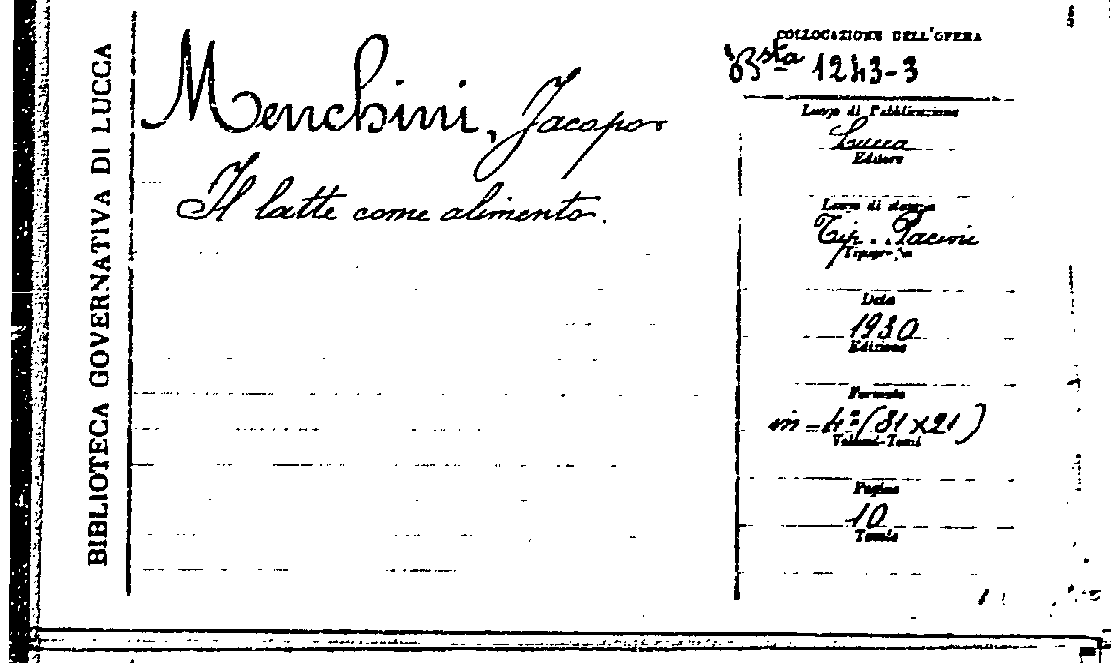 BIBLIOTECA GOVERNATIVA DI LUCCA
Menchini, Jacopo
Il latte come alimento.
COLLOCAZIONE DELL'OPERA
Bsta 1243-3
Luogo di Pubblicazione
Lucca
Editore
Luogo di stampa
Tip. Pacini
Tipografia
Data
1930
Edizione
Formato
in-4º (31x21)
Volumi-Tomi
Pagine
10
Tavole